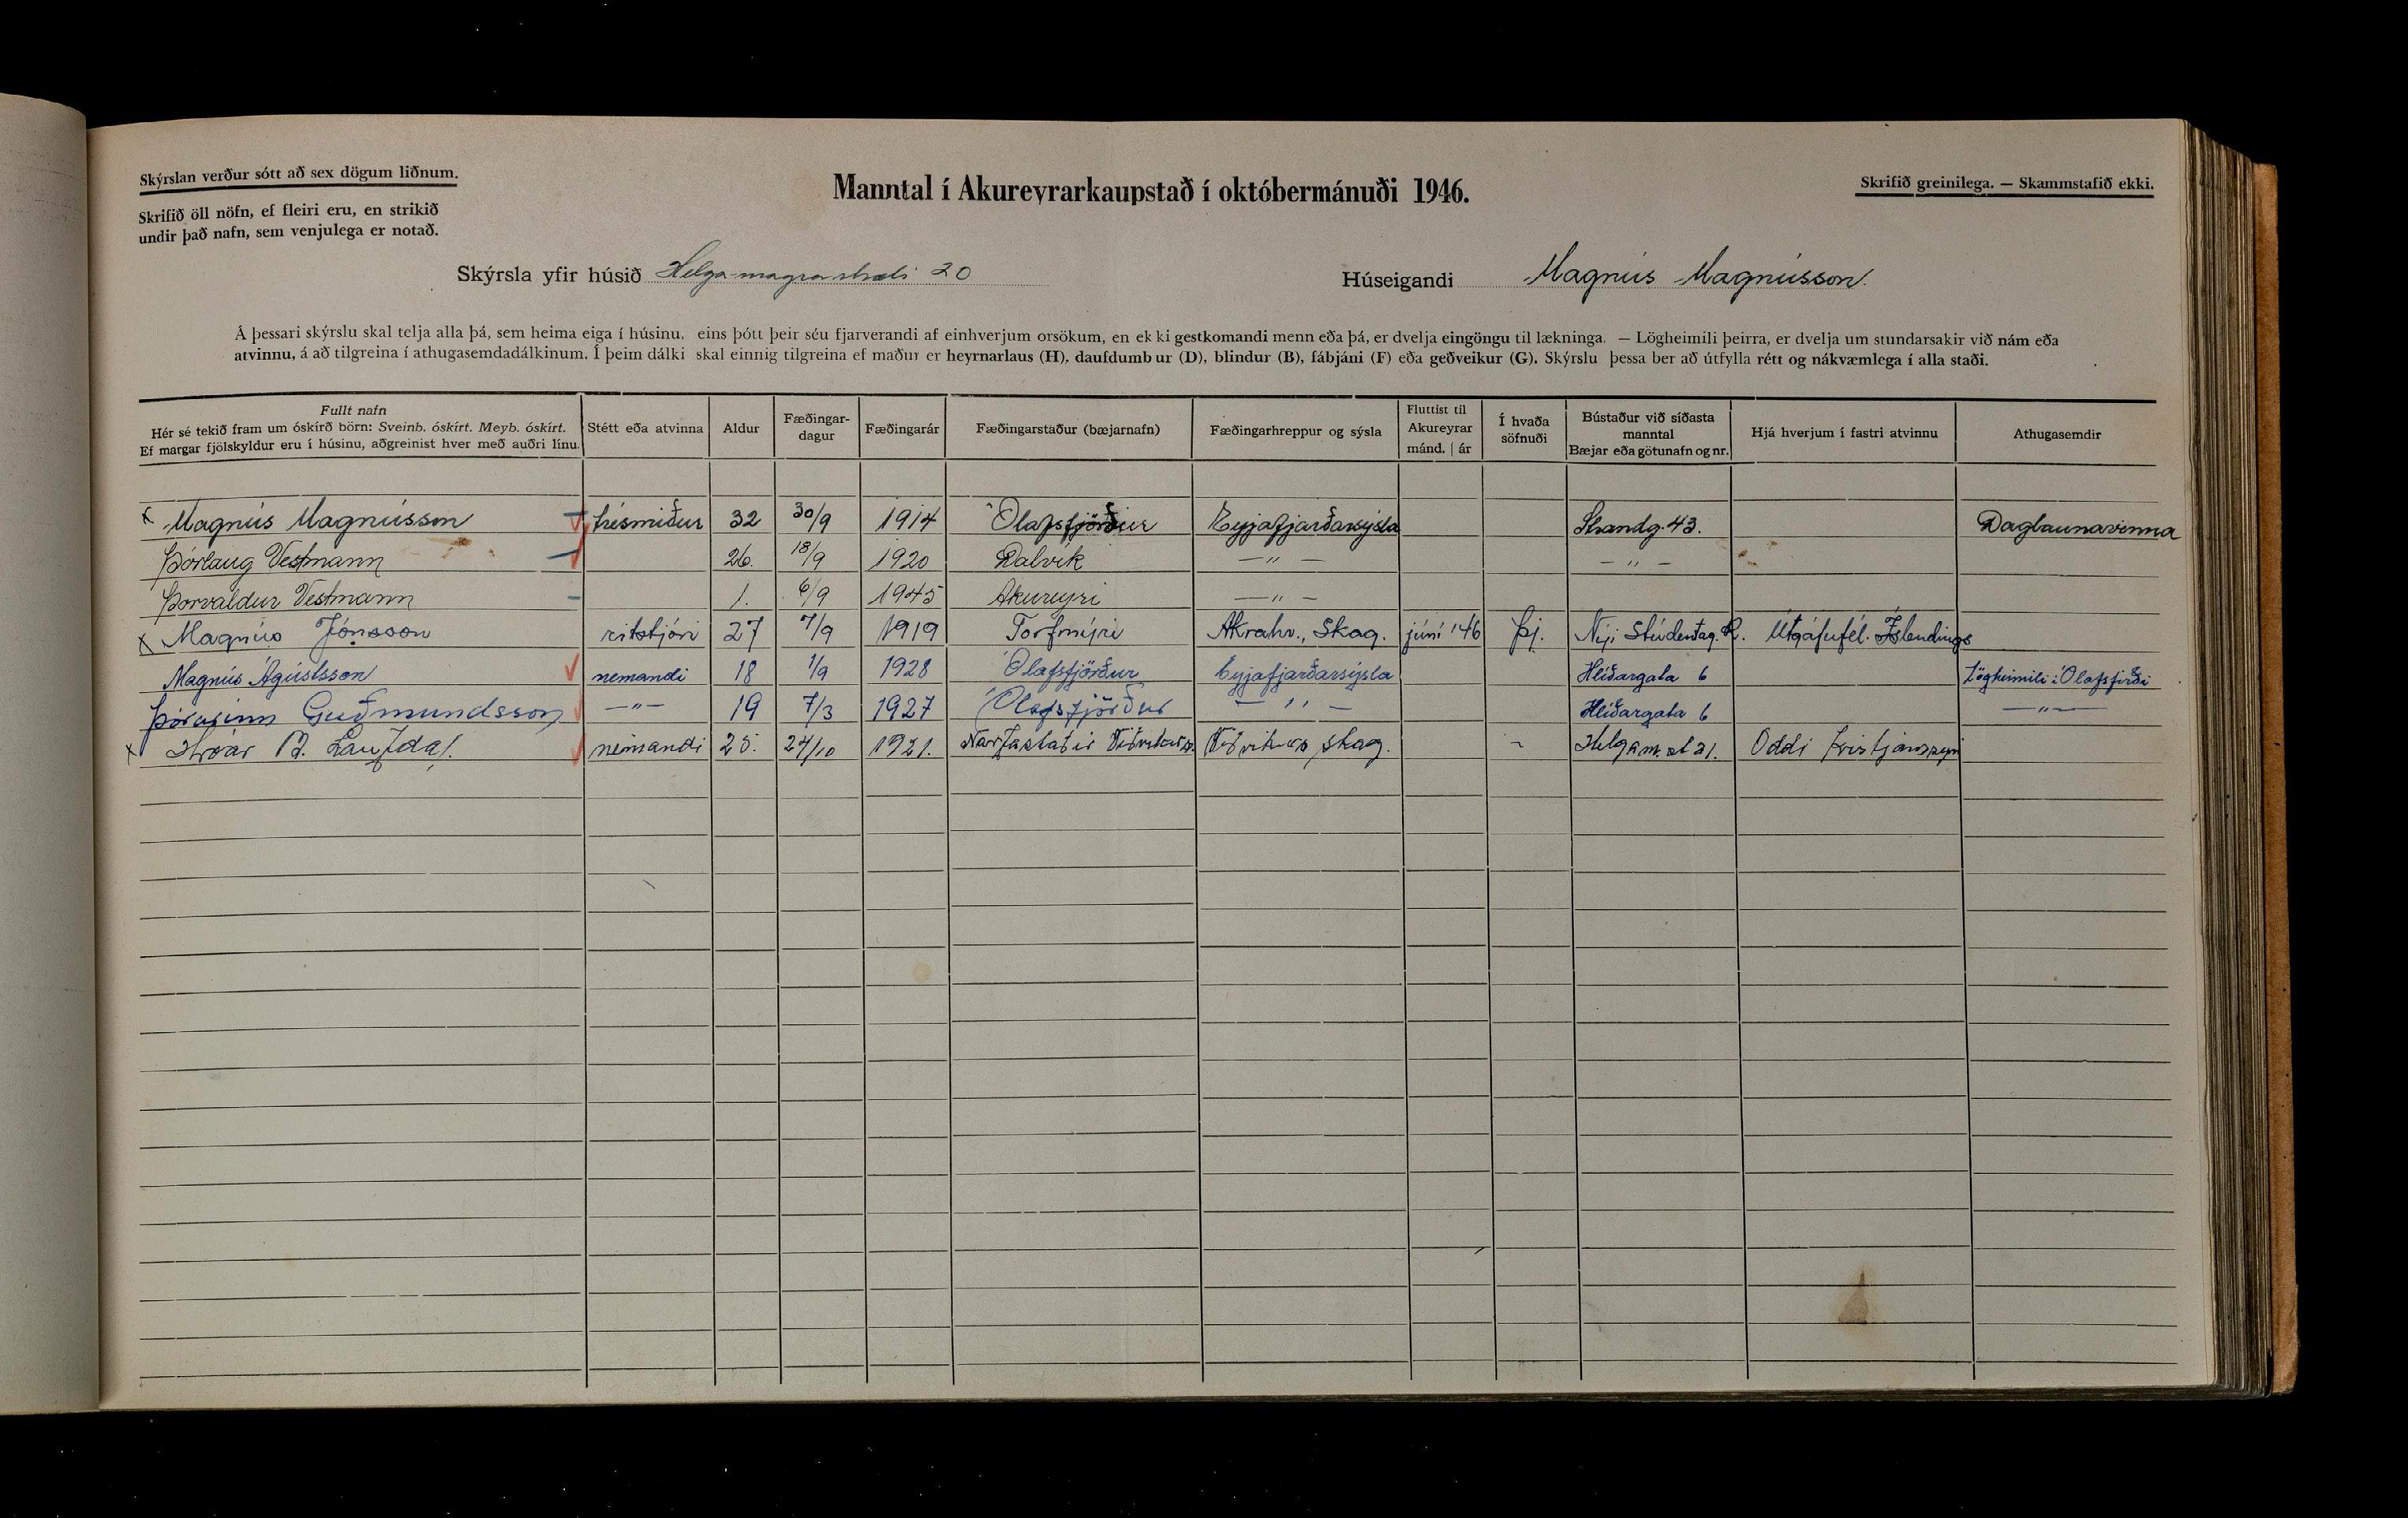 Skýrslan verður sótt að sex dögum liðnum.
Manntal í Akureyrarkaupstað í októbermánuði 1946.
Skrifið greinilega. — Skammstafið ekki.
Skrifið öll nöfn, ef fleiri eru, en strikið
undir það nafn, sem venjulega er notað.
Skýrsla yfir húsið Helga-magra stræti 20
Húseigandi Magnús Magnússon.
Á þessari skýrslu skal telja alla þá, sem heima eiga í húsinu, eins þótt þeir séu fjarverandi af einhverjum orsökum, en ekki gestkomandi menn eða þá, er dvelja eingöngu til lækninga. — Lögheimili þeirra, er dvelja um stundarsakir við nám eða
atvinnu, á að tilgreina í athugasemdadálkinum. Í þeim dálki skal einnig tilgreina ef maður er heyrnarlaus (H), daufdumbur (D), blindur (B), fábjáni (F) eða geðveikur (G). Skýrslu þessa ber að útfylla rétt og nákvæmlega í alla staði.
Fullt nafn
Hér sé tekið fram um óskírð börn: Sveinb. óskírt. Meyb. óskírt.
Ef margar fjölskyldur eru í húsinu, aðgreinist hver með auðri línu.
Stétt eða atvinna
Aldur
Fæðingar-
dagur
Fæðingarár
Fæðingarstaður (bæjarnafn)
Fæðingarhreppur og sýsla
Fluttist til
Akureyrar
mánd. | ár
Í hvaða
söfnuði
Bústaður við síðasta
manntal
Bæjar eða götunafn og nr.
Hjá hverjum í fastri atvinnu
Athugasemdir
x Magnús Magnússon trésmiður 32 30/9 1914 Ólafsfjörður Eyjafjarðarsýsla Strandg. 43. Daglaunavinna
Þórlaug Vestmann 26. 18/9 1920 Dalvík — " — — " —
Þorvaldur Vestmann 1. 6/9 1945 Akureyri — " —
x Magnús Jónsson ritstjóri 27 7/9 1919 Torfmýri Akrahr., Skag. júní '46 Þj. Nýi Stúdentag. R. Útgáfufél. Íslendings
Magnús Ágústsson nemandi 18 1/9 1928 Ólafsfjörður Eyjafjarðarsýsla Hlíðargata 6 Lögheimili í Ólafsfirði
Þórarinn Guðmundsson — " — 19 7/3 1927 Ólafsfjörður — " — Hlíðargata 6 — " —
x B. Laufdal. nemandi 25. 24/10 1921. Narfastaðir Viðvíkurs. Viðvíkurs, Skag. " Helgam. st 21. Oddi Kristjánssyni